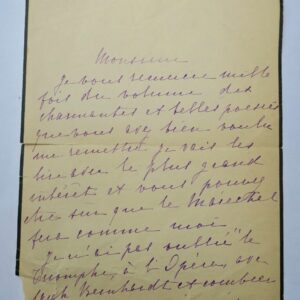 Monsieur
je vous remercie mille
fois du volume des
charmantes et belles poesies
que vous avez bien voulu
me remettre je vais les
lire avec le plus grand
intérêt et vous pouvez
être sur que le Maréchal
fera comme moi
Je n'ai pas oublié le
Triomphe, à l'Opéra, avec
Sarah Bernhardt et combien